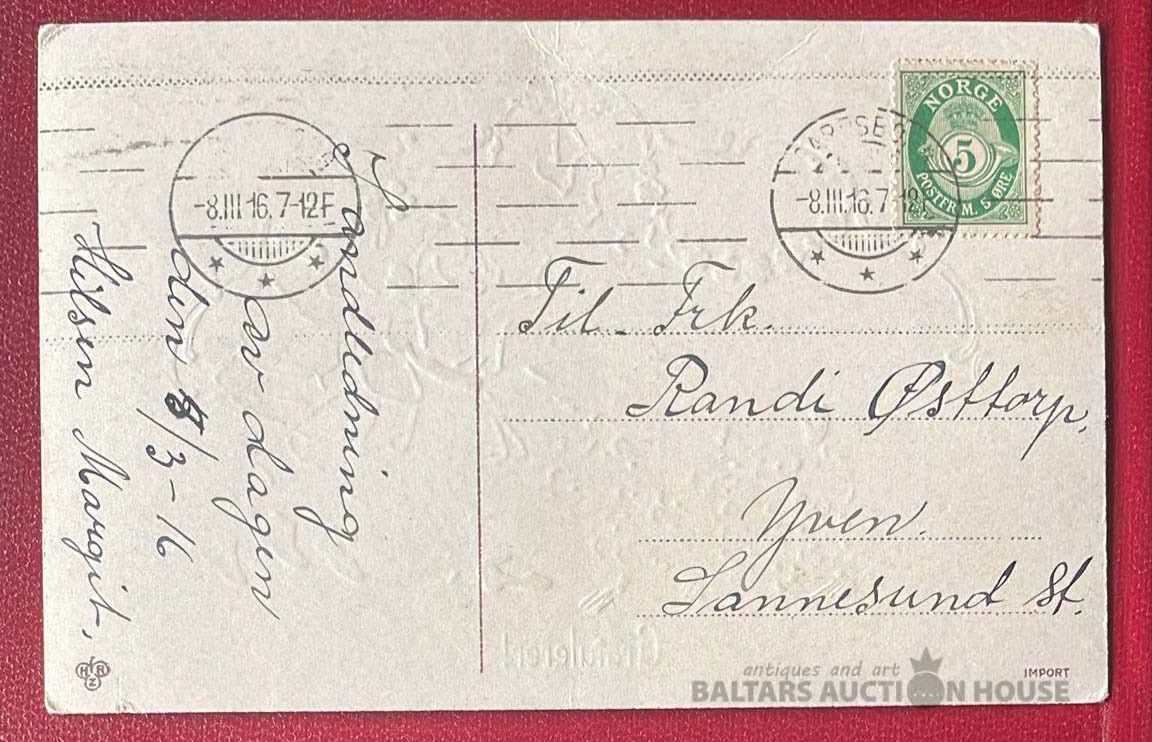 I andledning
av dagen
den 8/3-16
Hilsen Margit.
-8.III 16. 7-12F
-8.III.16. 7-12F
SARPSBORG
NORGE
5
POSTFRIM. 5 ØRE
Til Frk.
Randi Østtorp,
Yven.
Sannesund St.
Gratulerer!
HRZ
IMPORT
antiques and art
BALTARS AUCTION HOUSE